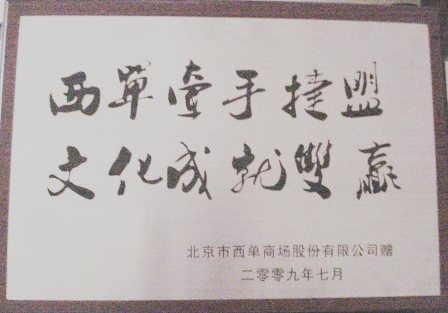 西單牽手捷盟
文化成就雙贏
北京市西单商场股份有限公司赠
二零零九年七月